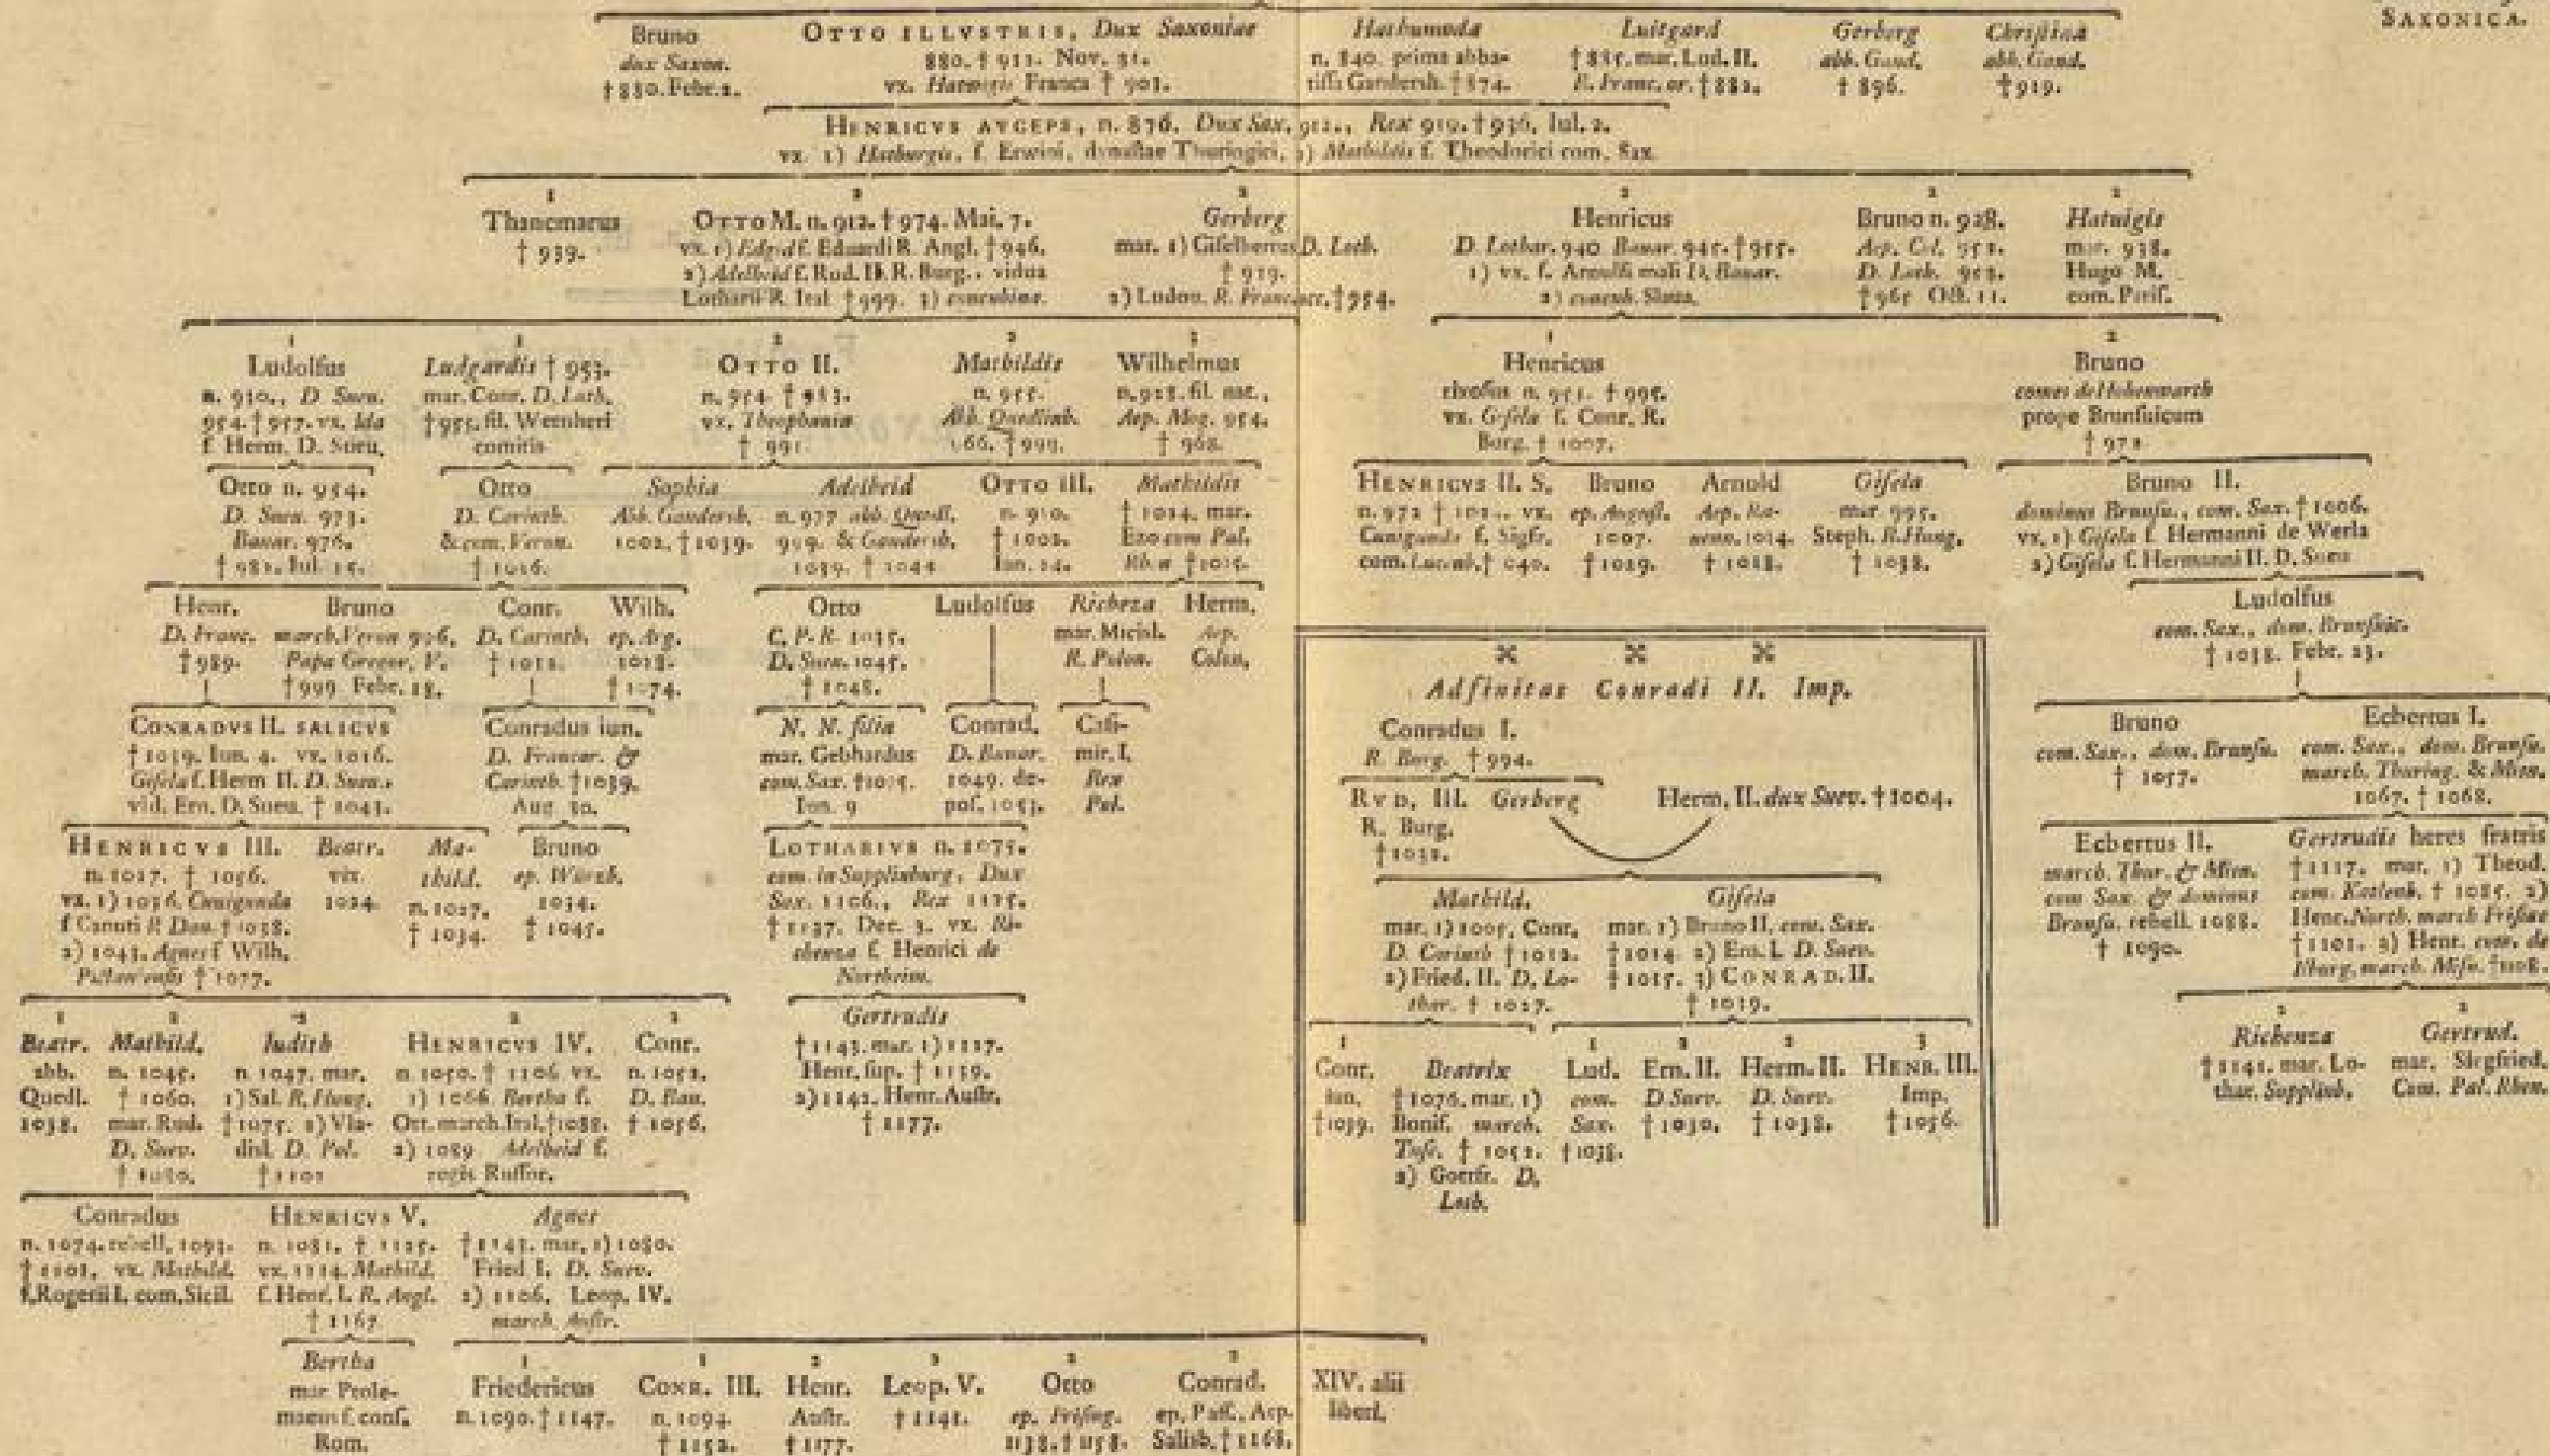 SAXONICA.
Bruno
dux Saxon.
† 880. Febr. 2.
OTTO ILLVSTRIS, Dux Saxoniae
880. † 912. Nov. 31.
vx. Hatwigis Franca † 903.
Hathumoda
n. 840. prima abba-
tissa Gandersh. † 874.
Luitgard
† 885. mar. Lud. II.
R. Franc. or. † 882.
Gerberg
abb. Gand.
† 896.
Christina
abb. Gand.
† 919.
HENRICVS AVCEPS, n. 876. Dux Sax. 912., Rex 919. † 936. Iul. 2.
vx. 1) Hatburgis, f. Erwini, dynastae Thuringici, 2) Mathildis f. Theodorici com. Sax.
1
Thancmarus
† 939.
2
OTTO M. n. 912. † 974. Mai. 7.
vx. 1) Edgid f. Eduardi R. Angl. † 946.
2) Adelheid f. Rud. II. R. Burg., vidua
Lotharii R. Ital. † 999. 3) concubina.
2
Gerberg
mar. 1) Giselbertus D. Loth.
† 919.
2) Ludou. R. Franc. occ. † 954.
2
Henricus
D. Lothar. 940 Bauar. 945. † 955.
1) vx. f. Arnulfi mali D. Bauar.
2) concub. Slaua.
2
Bruno n. 928.
Aep. Col. 953.
D. Loth. 953.
† 965 Oct. 11.
2
Hatuigis
mar. 938.
Hugo M.
com. Paris.
1
Ludolfus
n. 930., D. Sueu.
954. † 957. vx. Ida
f. Herm. D. Sueu.
1
Ludgardis † 953.
mar. Conr. D. Loth.
† 955. fil. Wernheri
comitis
2
OTTO II.
n. 954. † 983.
vx. Theophania
† 991.
2
Mathildis
n. 955.
Abb. Quedlinb.
966. † 999.
3
Wilhelmus
n. 928. fil. nat.,
Aep. Mog. 954.
† 968.
1
Henricus
rixosus n. 951. † 995.
vx. Gisela f. Conr. R.
Burg. † 1007.
2
Bruno
comes de Hohenwarth
prope Brunsuicum
† 972
Otto n. 954.
D. Sueu. 973.
Bauar. 976.
† 982. Iul. 15.
Otto
D. Carinth.
& com. Veron.
† 1016.
Sophia
Abb. Gandersh.
1002. † 1039.
Adelheid
n. 977 abb. Quedl.
999. & Gandersh.
1039. † 1044
OTTO III.
n. 980.
† 1002.
Ian. 24.
Mathildis
† 1024. mar.
Ezo com Pal.
Rhen. † 1035.
HENRICVS II. S.
vx.
Cunigunda f. Sigfr.
Bruno
ep. August.
1007.
† 1029.
Arnold
Aep. Ra-
uenn. 1014.
† 1018.
Gisela
mar. 995.
Steph. R. Hung.
† 1038.
Bruno II.
dominus Brunsu., com. Sax. † 1006.
vx. 1) Gisela f. Hermanni de Werla
2) Gisela f. Hermanni II. D. Sueu
Henr.
D. Franc.
† 989.
Bruno
march. Veron 996.
Papa Gregor. V.
† 999 Febr. 18.
Conr.
D. Carinth.
† 1012.
Wilh.
ep. Arg.
1028.
Otto
C. P. R. 1035.
D. Sueu. 1045.
† 1048.
Ludolfus
Richeza
mar. Micisl.
R. Polon.
Herm.
Aep.
Colon.
Ludolfus
com. Sax., dom. Brunsuic.
† 1038. Febr. 23.
CONRADVS II. SALICVS
† 1039. Iun. 4. vx. 1016.
Gisela f. Herm II. D. Sueu.
vid. Ern. D. Sueu. † 1043.
Conradus iun.
D. Francor. &
Carinth. † 1039.
Aug. 20.
N. N. filia
mar. Gebhardus
com. Sax. † 1075.
Iun. 9
Conrad.
D. Bauar.
1049. de-
pos. 1053.
Casi-
mir. I.
Rex
Pol.
Adfinitas Conradi II. Imp.
Conradus I.
R. Burg. † 994.
RVD. III.
R. Burg.
† 1032.
Gerberg
Herm. II. dux Suev. † 1004.
Bruno
com. Sax., dom. Brunsu.
† 1057.
Ecbertus I.
com. Sax., dom. Brunsu.
march. Thuring. & Misn.
1067. † 1068.
HENRICVS III.
n. 1017. † 1056.
vx. 1) 1036. Cunigunda
f Canuti R Dan. † 1038.
2) 1043. Agnes f Wilh.
Pictaviensis † 1077.
Beatr.
vix.
1024.
Ma-
thild.
n. 1027.
† 1034.
Bruno
ep. Würzb.
1034.
† 1045.
LOTHARIVS n. 1075.
com. in Supplinburg, Dux
Sax. 1106., Rex 1125.
† 1137. Dec. 3. vx. Ri-
chenza f. Henrici de
Northeim.
Mathild.
mar. 1) 1005. Conr.
D. Carinth † 1012.
2) Fried. II. D. Lo-
thar. † 1027.
Gisela
mar. 1) Bruno II. com. Sax.
† 1014. 2) Ern. I. D. Suev.
† 1015. 3) CONRAD. II.
† 1039.
Ecbertus II.
march. Thur. & Misn.
com Sax. & dominus
Brunsu. rebell. 1088.
† 1090.
Gertrudis heres fratris
† 1117. mar. 1) Theod.
com. Katlenb. † 1085. 2)
Henr. North. march Frisiae
† 1101. 3) Henr. com. de
Ilburg, march. Misn. † 1108.
1
Beatr.
abb.
Quedl.
1038.
2
Mathild.
n. 1045.
† 1060.
mar. Rud.
D. Suev.
† 1080.
2
Iudith
n. 1047. mar.
1) Sal. R. Hung.
† 1075. 2) Vla-
disl. D. Pol.
† 1102
2
HENRICVS IV.
n. 1050. † 1106 vx.
1) 1066. Bertha f.
Ott. march. Ital. † 1088.
2) 1089 Adelheid f.
regis Russor.
2
Conr.
n. 1052.
D. Bau.
† 1056.
Gertrudis
† 1143. mar. 1) 1127.
Henr. sup. † 1139.
2) 1142. Henr. Austr.
† 1177.
1
Conr.
iun.
† 1039.
Beatrix
† 1076. mar. 1)
Bonif. march.
Tusc. † 1052.
2) Goetfr. D.
Loth.
1
Lud.
com.
Sax.
† 1038.
2
Ern. II.
D. Suev.
† 1030.
2
Herm. II.
D. Suev.
† 1038.
3
HENR. III.
Imp.
† 1056.
2
Richenza
† 1141. mar. Lo-
thar. Supplinb.
2
Gertrud.
mar. Siegfried.
Com. Pal. Rhen.
Conradus
n. 1074. rebell. 1093.
† 1101. vx. Mathild.
f. Rogerii I. com. Sicil.
HENRICVS V.
n. 1081. † 1125.
vx. 1114. Mathild.
f. Henr. I. R. Angl.
† 1167
Agnes
† 1143. mar. 1) 1080.
Fried I. D. Suev.
2) 1106. Leop. IV.
march. Austr.
Bertha
mar Ptole-
maeus f. cons.
Rom.
1
Friedericus
n. 1090. † 1147.
1
CONR. III.
n. 1094.
† 1152.
2
Henr.
Austr.
† 1177.
2
Leop. V.
† 1141.
2
Otto
ep. Frising.
1138. † 1158.
2
Conrad.
ep. Pass., Aep.
Salisb. † 1168.
XIV. alii
liberi.